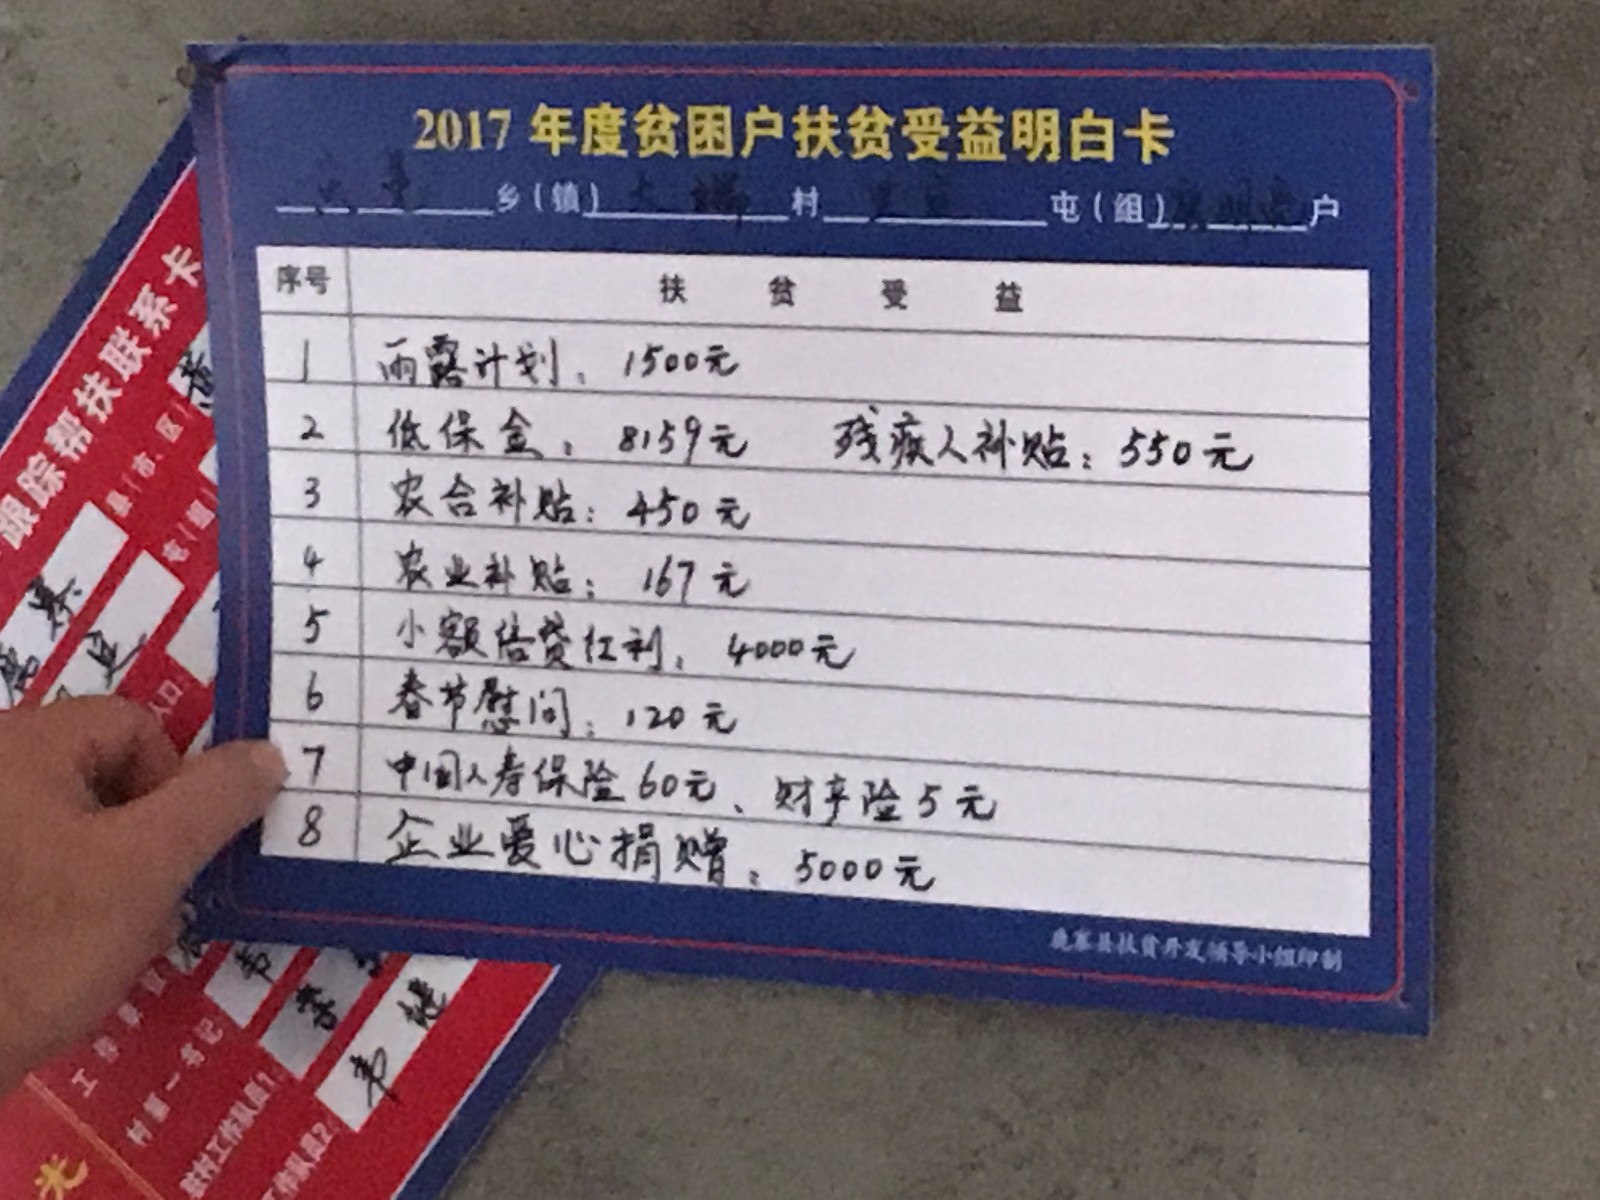 2017年度贫困户扶贫受益明白卡
乡（镇）大端村 屯（组） 户
序号 扶贫受益
1 雨露计划：1500元
2 低保金：8159元 残疾人补贴：550元
3 农合补贴：450元
4 农业补贴：167元
5 小额信贷红利：4000元
6 春节慰问：120元
7 中国人寿保险60元、财产险5元
8 企业爱心捐赠：5000元
鹿寨县扶贫开发领导小组印制
跟踪帮扶联系卡
县（市、区）
屯（组）
人口
村第一书记
驻村工作队员1:
工作队员2:
韦健
光